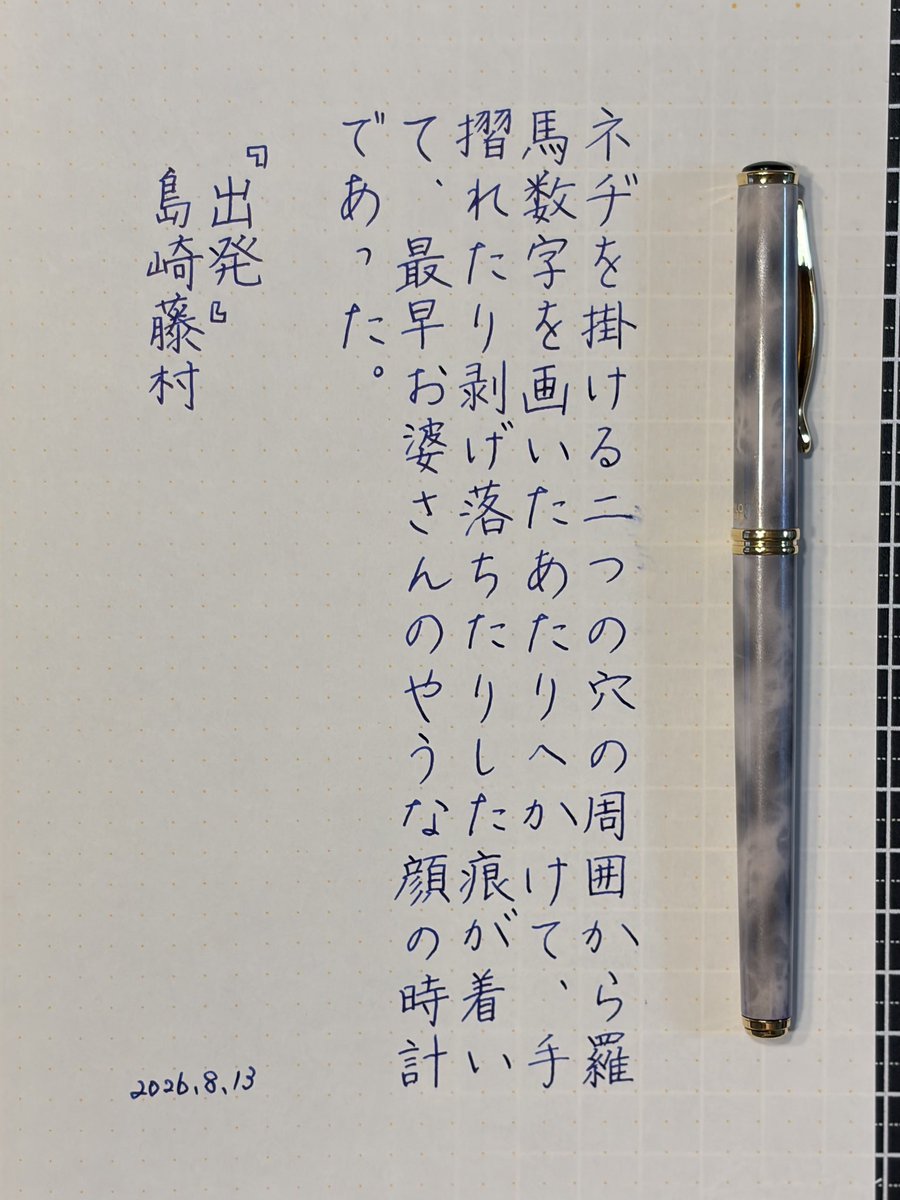 ネヂを掛ける二つの穴の周囲から羅
馬数字を画いたあたりへかけて、手
摺れたり剥げ落ちたりした痕が着い
て、最早お婆さんのやうな顔の時計
であった。
『出発』
島崎藤村
2026.8.13